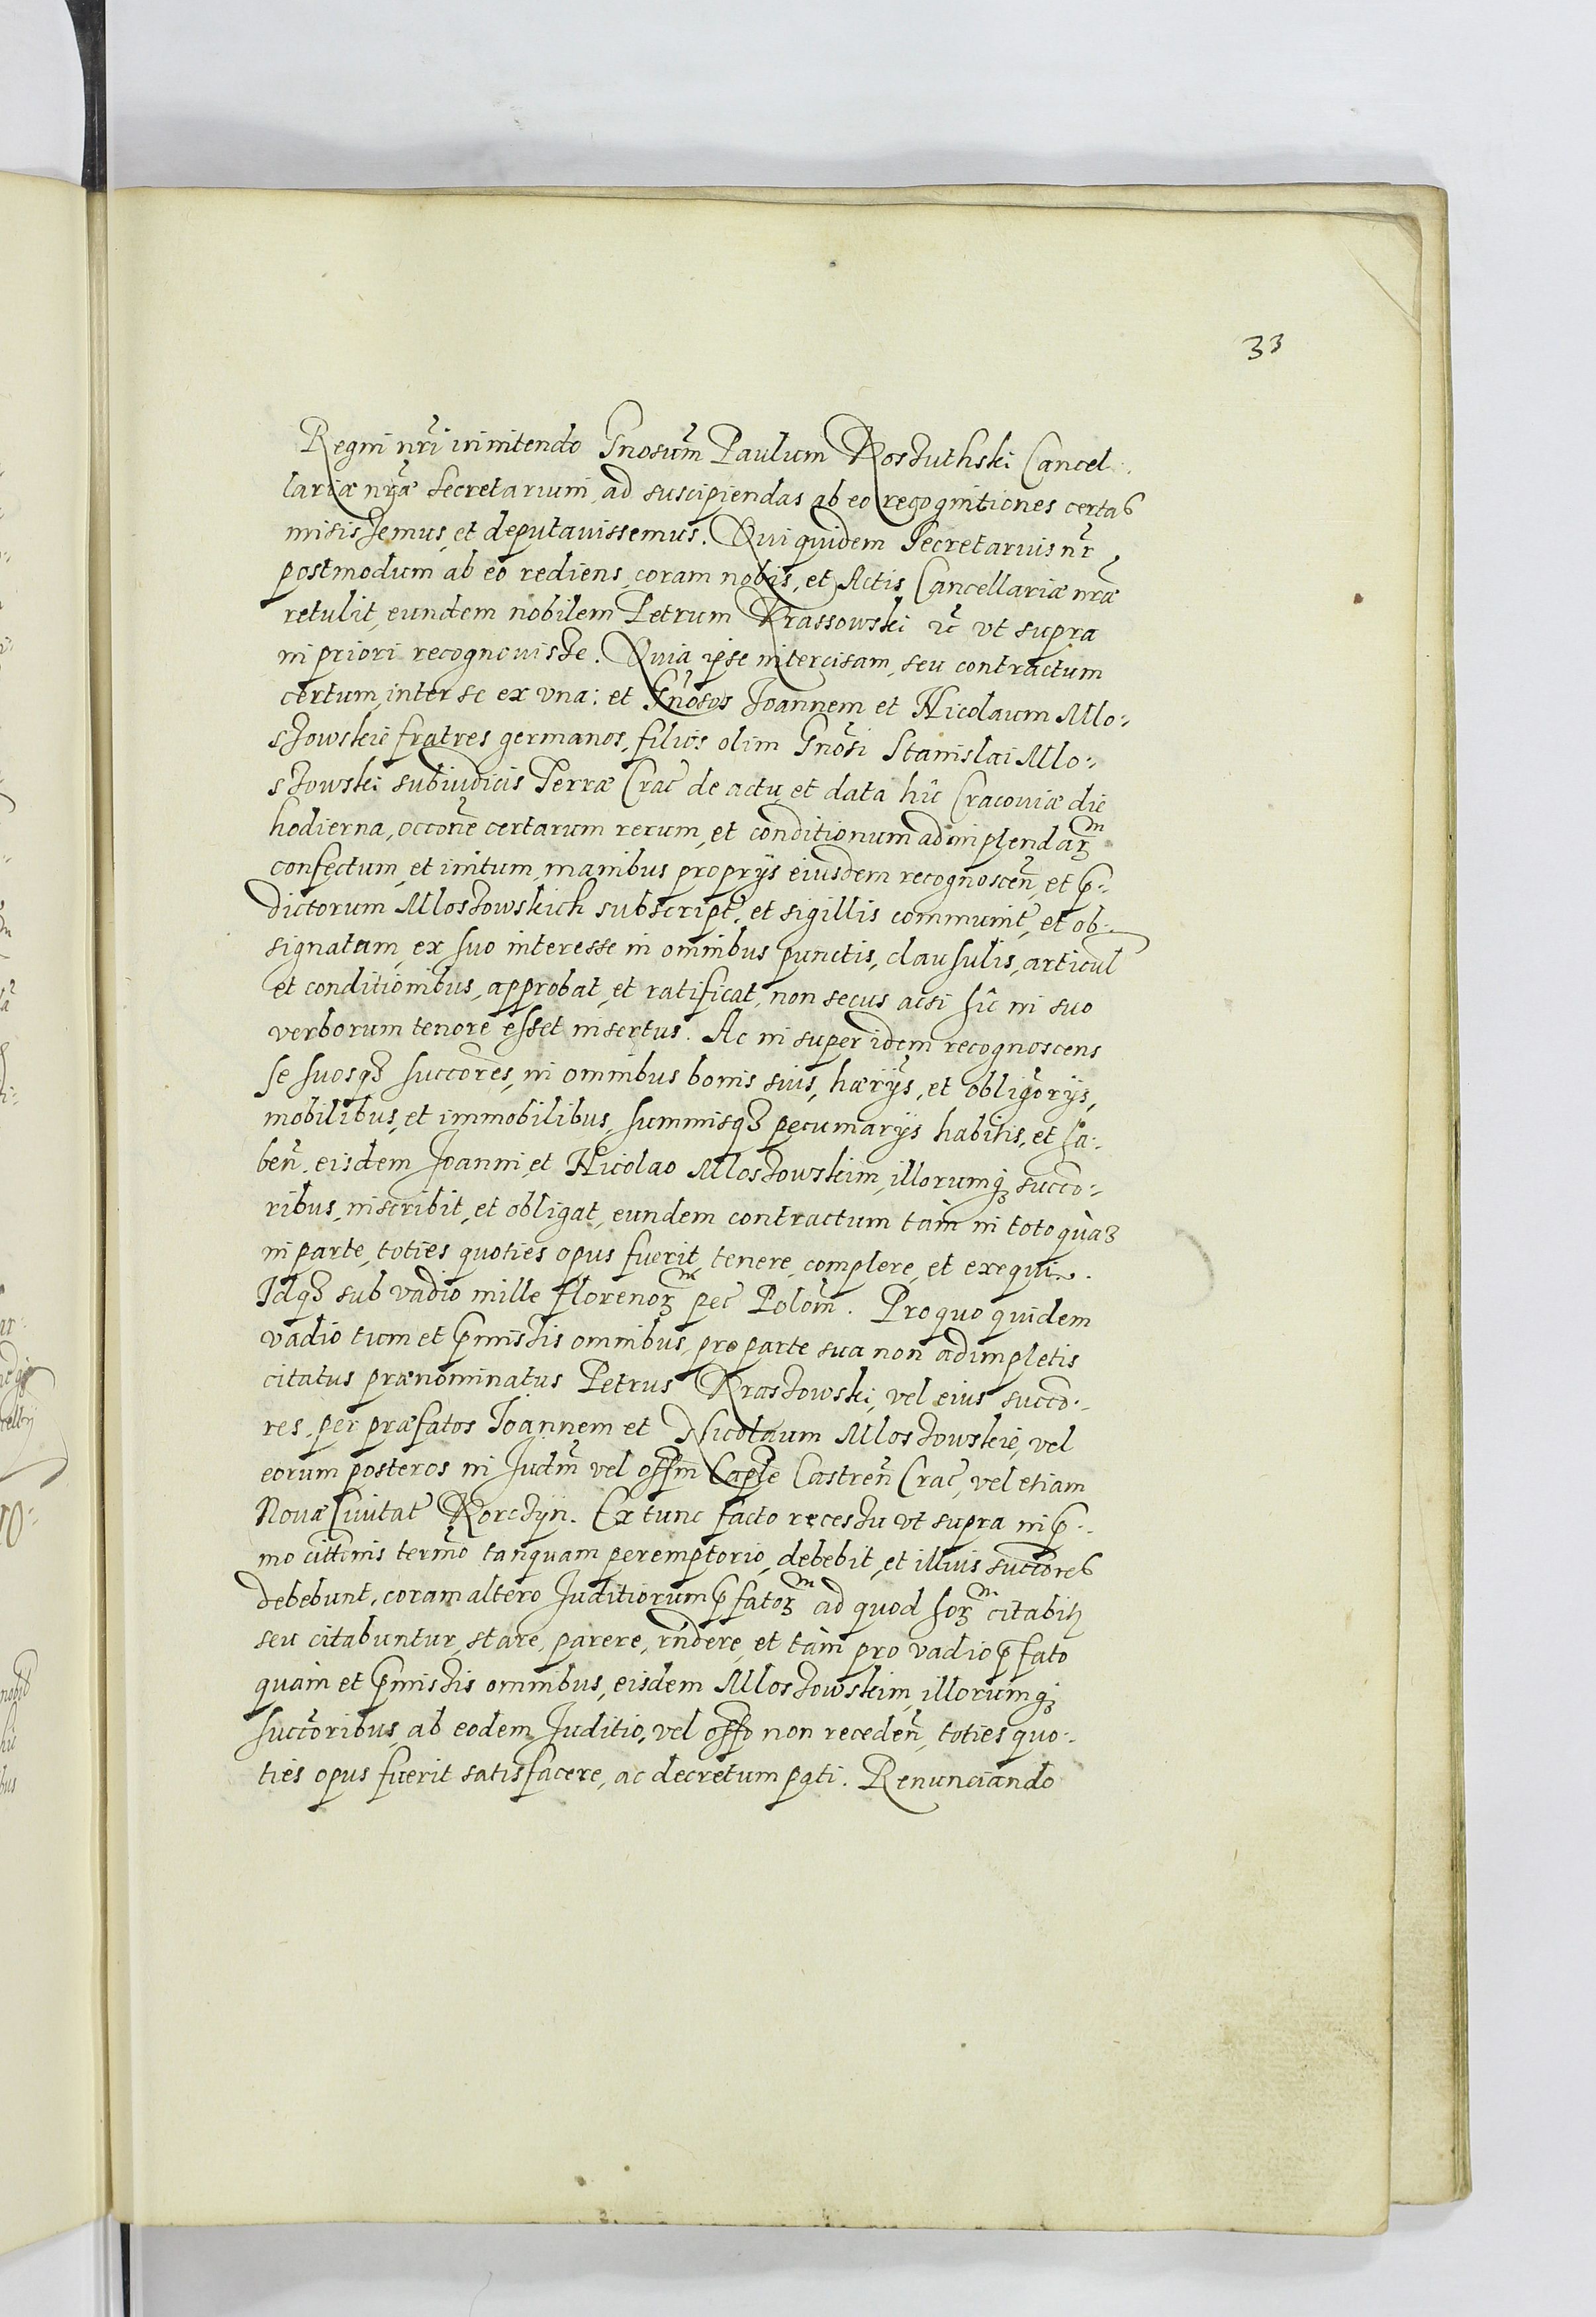 33
Regni nri innitendo Gnosum Paulum Koszuthski Cancel:
lariæ nræ Secretarium, ad suscipiendas ab eo recognitiones certas
misissemus, et deputauissemus. Qui quidem Secretarius nr,
postmodum ab eo rediens, coram nobis, et Actis Cancellariæ nræ
retulit, eundem nobilem Petrum Krassowski &c vt supra
in priori recognouisse. Quia ipse intercisam, seu contractum
certum, inter se ex vna: et Gnosos Joannem et Nicolaum Mlo:
szowskie fratres germanos, filios olim Gnosi Stanislai Mlo:
szowski subiudicis Terræ Crac de actu et data hîc Cracouiæ die
hodierna, occone certarum rerum, et conditionum adimplendaꝝm
confectum, et initum, manibus proprijs eiusdem recognoscen, et p:
dictorum Mloszowskich subscript, et sigillis communit, et ob:
signatam, ex suo interesse in omnibus punctis, clausulis, articul
et conditionibus, approbat, et ratificat, non secus acsi hîc in suo
verborum tenore esset insertus. Ac in super idem recognoscens
se suosqꝫ succores, in omnibus bonis suis, hærijs, et obligorijs,
mobilibus, et immobilibus, summisqꝫ pecuniarijs habitis, et ha:
ben, eisdem Joanni, et Nicolao Mloszowskim, illorumqꝫ succo:
ribus, inscribit, et obligat, eundem contractum tàm in toto quàꝫ
in parte, toties quoties opus fuerit, tenere, complere, et exequi.
Idqꝫ sub vadio mille florenoꝝm pec Polom. Pro quo quidem
vadio tum et pmissis omnibus, pro parte sua non adimpletis
citatus prænominatus Petrus Krassowski, vel eius succo:
res, per præfatos Ioannem et Nicolaum Mloszowskie, vel
eorum posteros in Judm vel offm Caple Castren Crac, vel etiam
Nouæ Ciuitat Korczyn. Ex tunc facto recessu vt supra in p:
mo cittonis termo tanquam peremptorio, debebit, et illius succores
debebunt, coram altero Juditiorum pfatoꝝm ad quod hoꝝm citabitꝫ
seu citabuntur, stare, parere, rndere, et tàm pro vadio pfato
quàm et pmissis omnibus, eisdem Mloszowskim, illorumqꝫ
succoribus, ab eodem Juditio, vel offo non receden, toties quo:
ties opus fuerit satisfacere, ac decretum pati. Renunciando